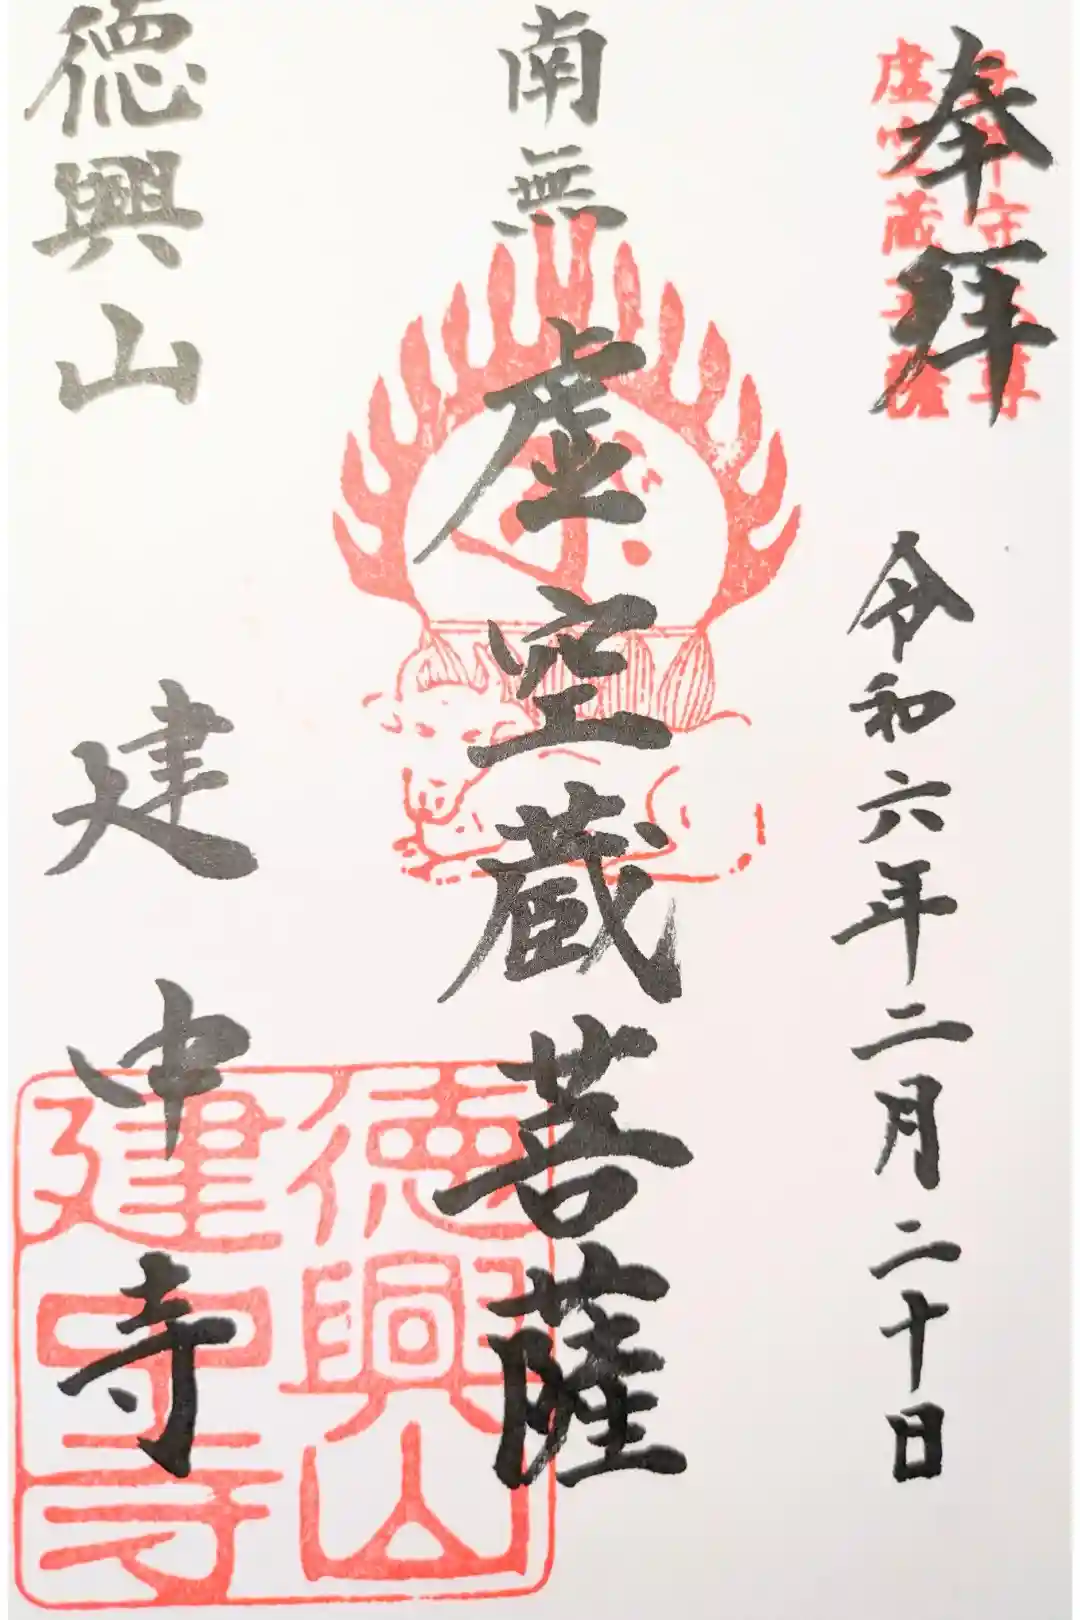 奉拝
令和六年二月二十日
南無
虚空蔵菩薩
徳興山
建中寺
虚空蔵菩薩
徳興山
建中寺